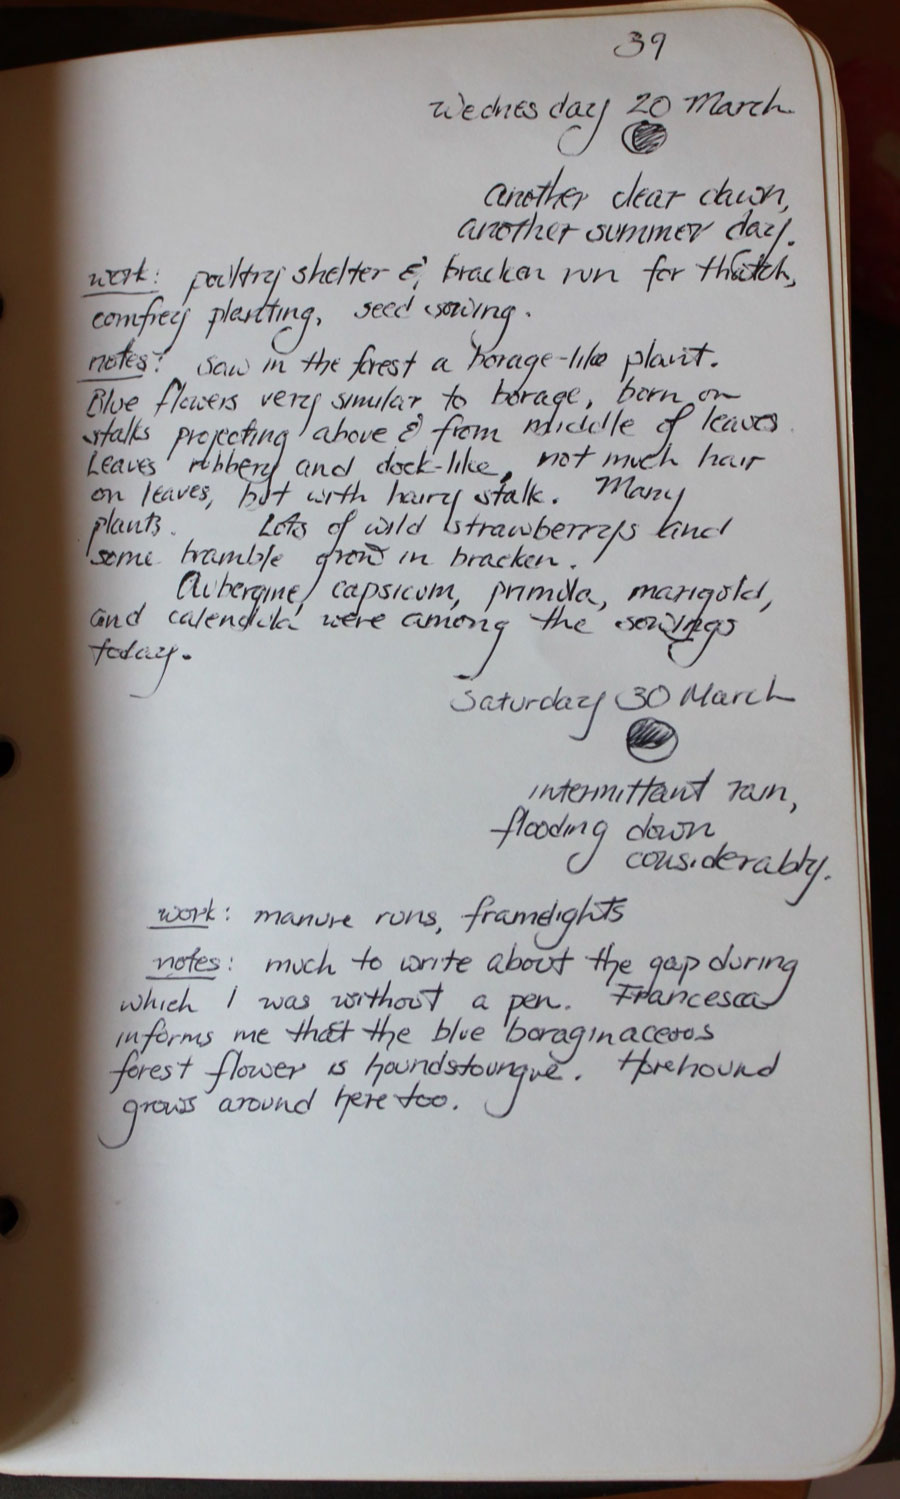 39
Wednesday 20 March
another clear dawn,
another summer day.
work: poultry shelter & bracken run for thatch,
comfrey planting, seed sowing.
notes: saw in the forest a borage-like plant.
Blue flowers very similar to borage, born on
stalks projecting above & from middle of leaves.
Leaves rubbery and dock-like, not much hair
on leaves, but with hairy stalk. Many
plants. Lots of wild strawberrys and
some bramble grow in bracken.
Aubergine, capsicum, primula, marigold,
and calendula were among the sowings
today.
Saturday 30 March
intermittant rain,
flooding down
considerably.
work: manure runs, framelights
notes: much to write about the gap during
which I was without a pen. Francesca
informs me that the blue boraginaceous
forest flower is houndstoungue. Horehound
grows around here too.